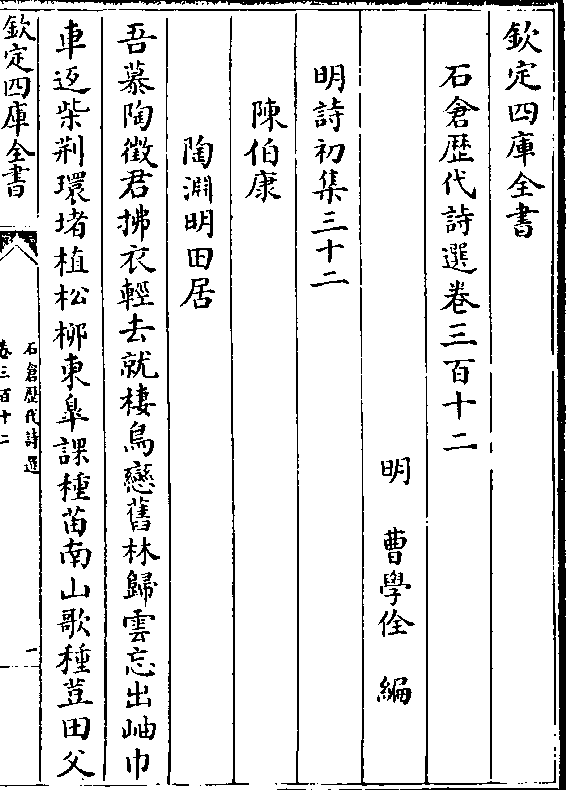 欽定四庫全書
石倉歴代詩選卷三百十二
明　曹學佺　編
明詩初集三十二
陳伯康
陶淵明田居
吾慕陶徵君拂衣輕去就棲鳥戀舊林歸雲忘出岫巾
車返柴荆環堵植松柳東臯課種苗南山歌種荳田父
欽定四庫全書
石倉歴代詩選
卷三百十二
一